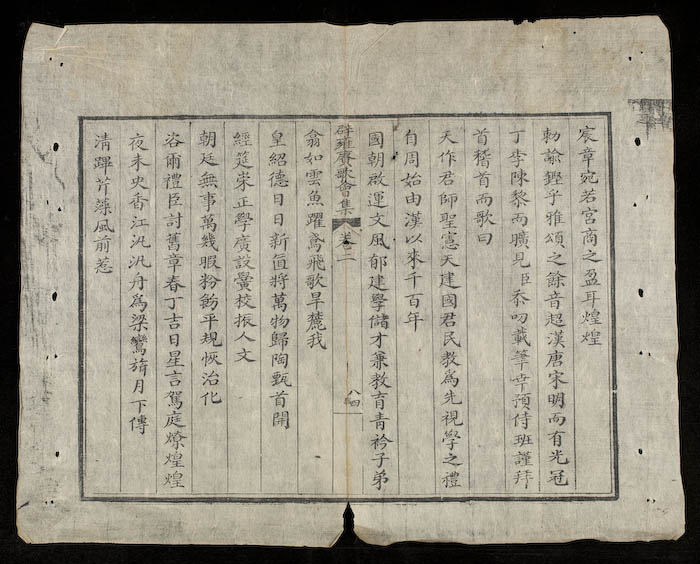 宸章宛若宮商之盈耳煌煌
勅諭鏗乎雅頌之餘音超漢唐宋明而有光冠
丁李陳黎而曠見臣忝叨載筆幸預侍班謹拜
首稽首而歌曰
天作君師聖憲天建國君民教爲先視學之禮
自周始由漢以來千百年
國朝啟運文風郁建學儲才兼教育青衿子弟
辟雍賡歌會集 卷之二 八四
翕如雲魚躍鳶飛歌旱麓我
皇紹德日日新直將萬物歸陶甄首開
經筵崇正學廣設黌校振人文
朝廷無事萬幾暇粉飭平規恢治化
咨爾禮臣討舊章春丁吉日星言駕庭燎煌煌
夜未央香江汎汎舟為梁鸞旂月下傳
清蹕芹藻風前惹